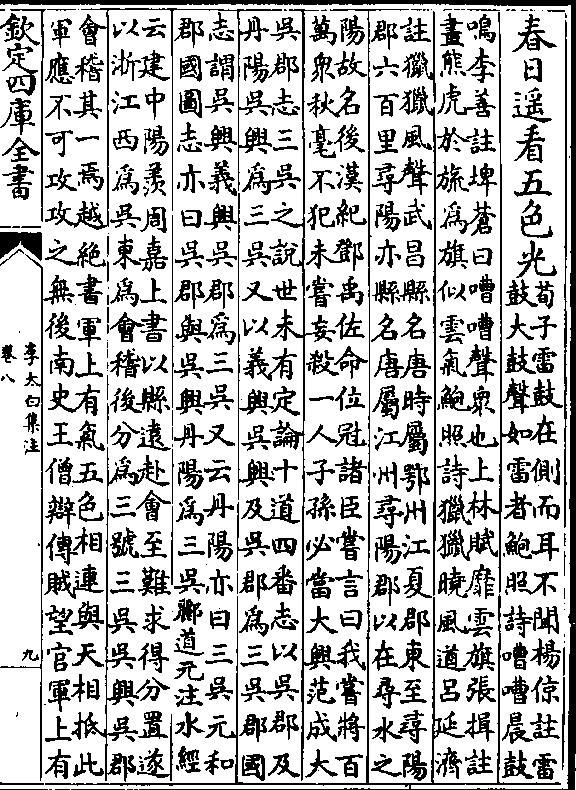 春日遥看五色光
荀子雷鼓在側而耳不聞楊倞註雷
鼓大鼓聲如雷者鮑照詩嘈嘈晨鼓
鳴李善註埤蒼曰嘈嘈聲衆也上林賦靡雲旗張揖註
畫熊虎於旒為旗似雲氣鮑照詩獵獵曉風遒呂延濟
註獵獵風聲武昌縣名唐時屬鄂州江夏郡東至尋陽
郡六百里尋陽亦縣名唐屬江州尋陽郡以在尋水之
陽故名後漢紀鄧禹佐命位冠諸臣嘗言曰我嘗將百
萬衆秋毫不犯未嘗妄殺一人子孫必當大興范成大
吳郡志三吳之說世未有定論十道四番志以吳郡及
丹陽吳興為三吳又以義興吳興及吳郡為三吳郡國
志謂吳興義興吳郡為三吳又云丹陽亦曰三吳元和
郡國圖志亦曰吳郡與吳興丹陽為三吳酈道元注水經
云建中陽羨周嘉上書以縣遠赴會至難求得分置遂
以浙江西為吳東為會稽後分為三號三吳吳興吳郡
會稽其一焉越絶書軍上有氣五色相連與天相抵此
軍應不可攻攻之無後南史王僧辯傳賊望官軍上有
欽定四庫全書
李太白集注
卷八
九